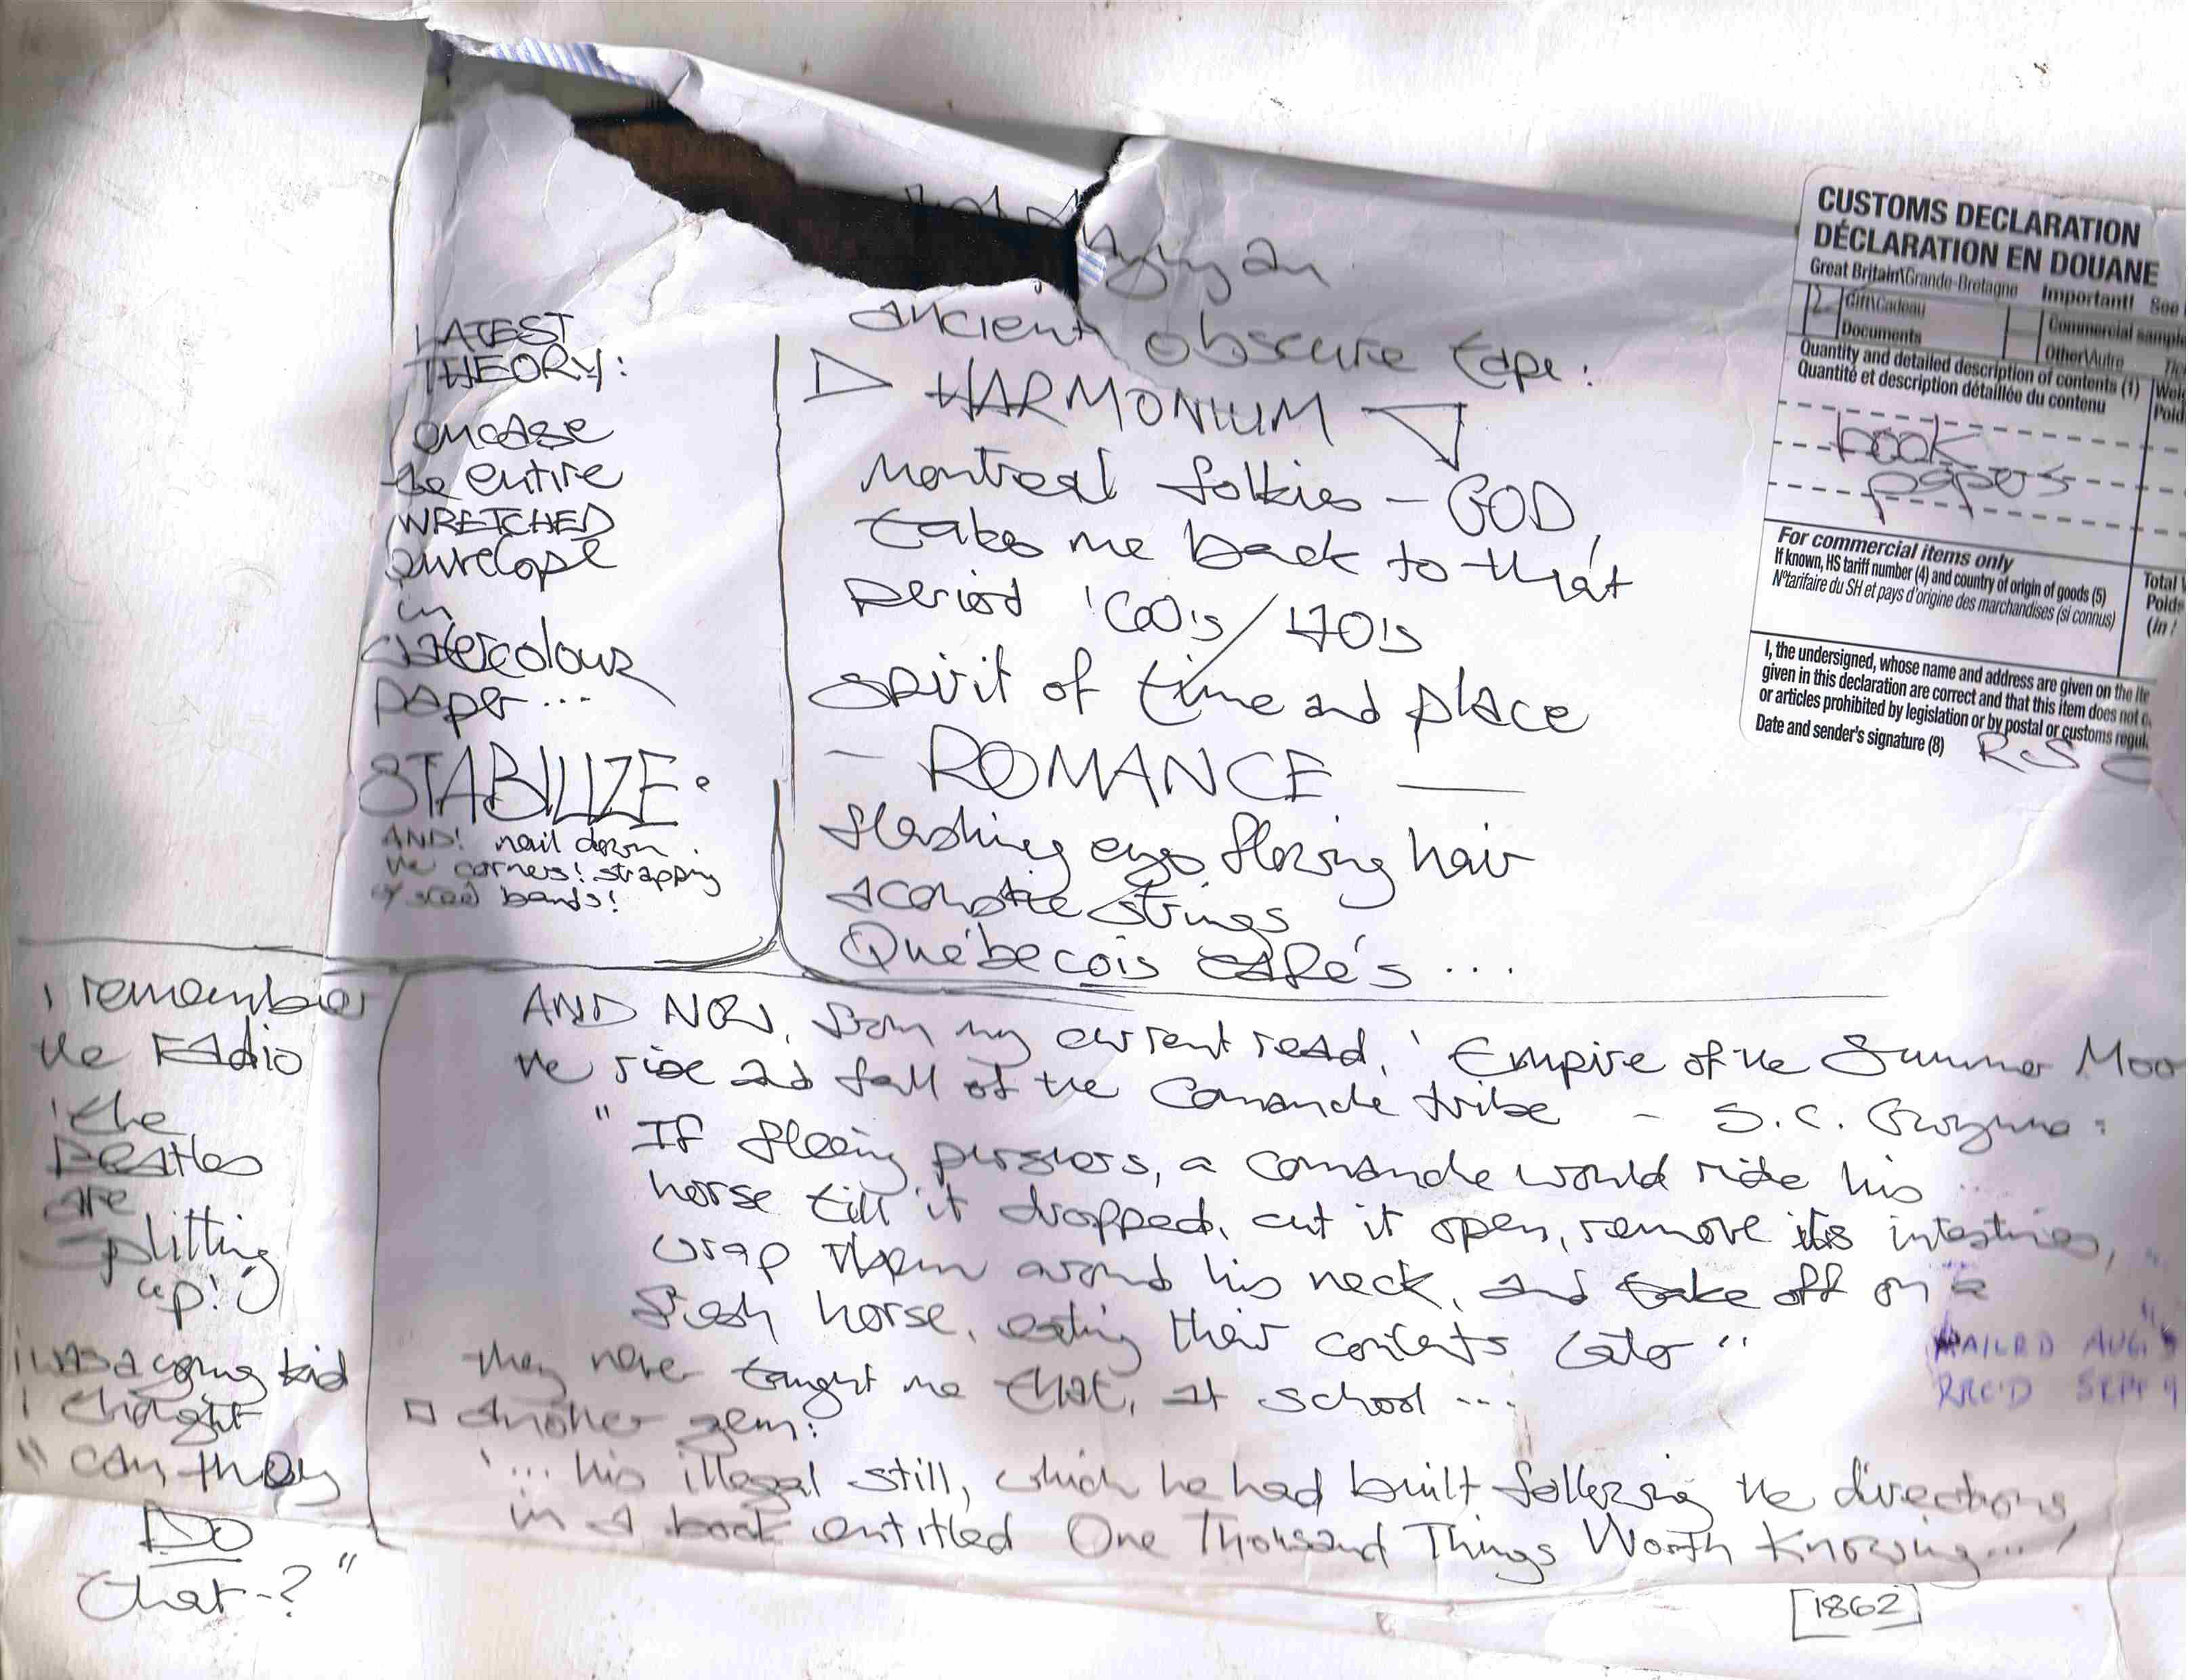 LATEST
THEORY:
encase
the entire
WRETCHED
envelope
in
watercolour
paper...
STABILIZE.
AND! nail down
the corners! strapping
of steel bands!
an
ancient obscure tape:
HARMONIUM
Montreal folkies – GOD,
takes me back to that
period '60's/'70's
spirit of time and place
— ROMANCE —
flashing eyes flowing hair
acoustic strings
Québecois café's ...
CUSTOMS DECLARATION
DÉCLARATION EN DOUANE
Great Britain\Grande-Bretagne Important! See
Gift\Cadeau
Commercial sample
Documents
Other\Autre
Quantity and detailed description of contents (1)
Quantité et description détaillée du contenu
book
papers
For commercial items only
If known, HS tariff number (4) and country of origin of goods (5)
N°tarifaire du SH et pays d'origine des marchandises (si connus)
Total
Poids
(in
I, the undersigned, whose name and address are given on the ite
given in this declaration are correct and that this item does not c
or articles prohibited by legislation or by postal or customs regul
Date and sender's signature (8) RSC
i remember
the radio
'the
Beatles
are
splitting
up!'
i was a young kid
i thought
"can they
DO
that-?"
AND NOW, from my current read, 'Empire of the Summer Moo
the rise and fall of the Comanche tribe – S.C. Gwynne:
"If fleeing pursuers, a comanche would ride his
horse till it dropped, cut it open, remove its intestines,
wrap them around his neck, and take off on a
fresh horse, eating their contents later"
they never taught me that, at school ...
another gem:
'... his illegal still, which he had built following the directions
in a book entitled One Thousand Things Worth Knowing...'
MAILED AUG
REC'D SEPT 9
[1862]